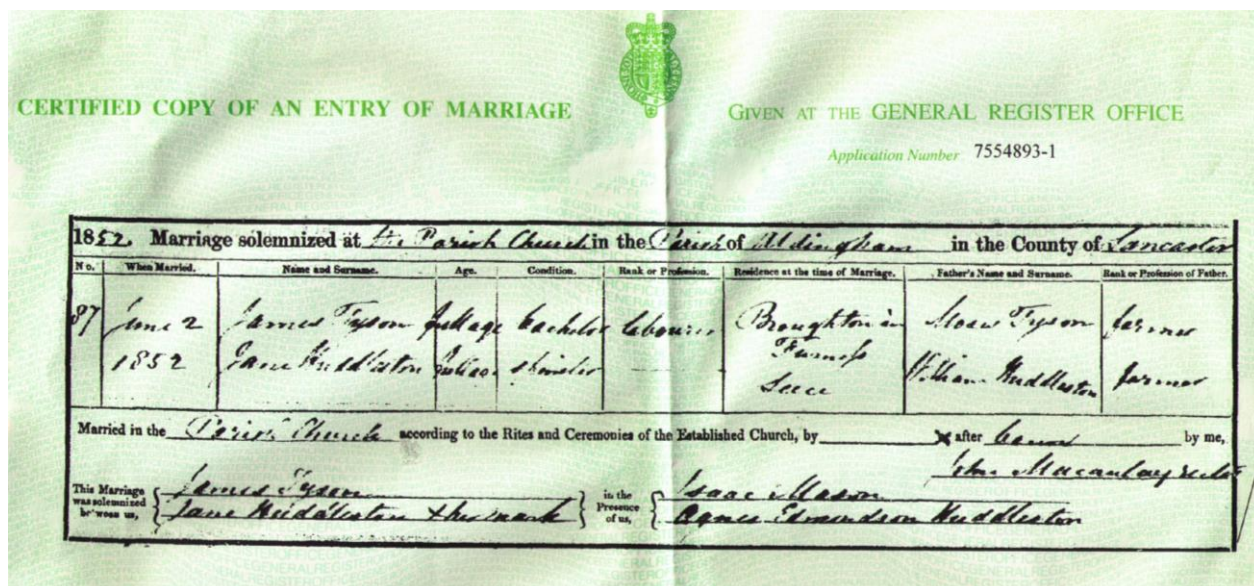 CERTIFIED COPY OF AN ENTRY OF MARRIAGE
GIVEN AT THE GENERAL REGISTER OFFICE
Application Number 7554893-1
1852. Marriage solemnized at the Parish Church in the Parish of Aldingham in the County of Lancaster
No. When Married. Name and Surname. Age. Condition. Rank or Profession. Residence at the time of Marriage. Father's Name and Surname. Rank or Profession of Father.
87 June 2 James Tyson full age bachelor labourer Broughton in Tyson farmer
1852 Jane Huddleston full age spinster Furness William Huddleston farmer
Leece
Married in the Parish Church according to the Rites and Ceremonies of the Established Church, by after banns by me,
John Macaulay rector
This Marriage was solemnized between us, James Tyson in the Presence of us, Isaac Mason
Jane Huddleston x her mark Agnes Edmondson Huddleston